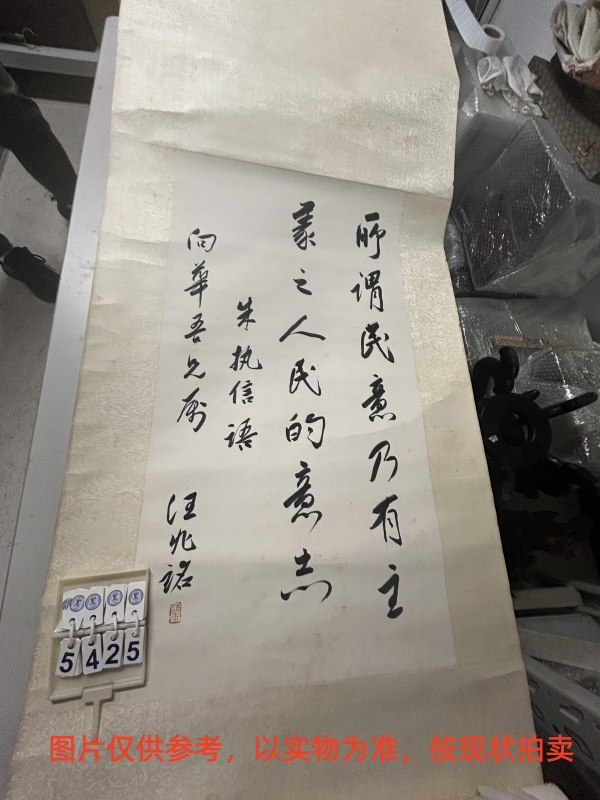 所谓民意乃有主
义之人民的意志
朱执信语
向华吾兄属
汪兆铭
5425
图片仅供参考，以实物为准，按现状拍卖